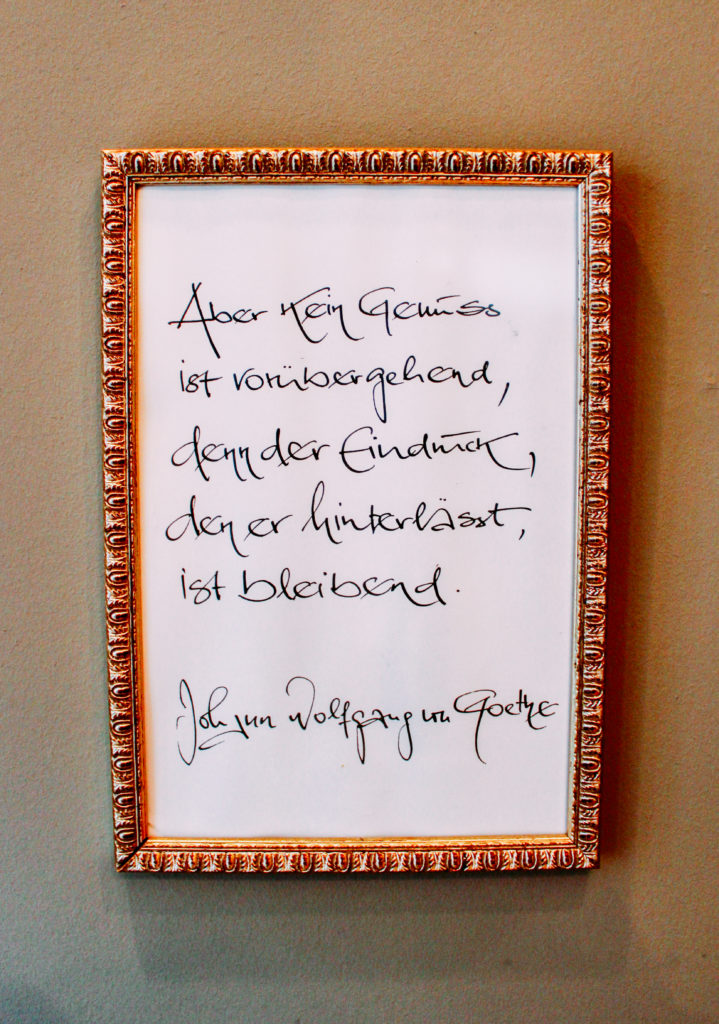 Aber kein Genuss
ist vorübergehend,
denn der Eindruck,
den er hinterlässt,
ist bleibend.
Johann Wolfgang von Goethe